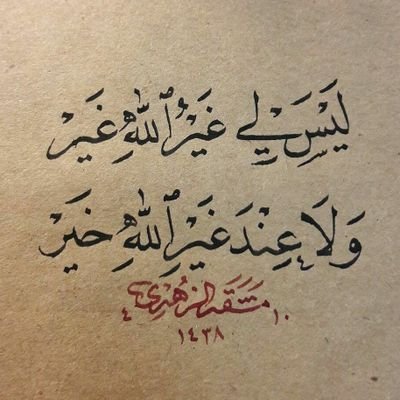 لَيْسَ لِي غَيْرُ ٱللَّهِ غَيْر
وَلَا عِنْدَ غَيْرِ ٱللَّهِ خَيْر
مشقه الزهدي
١٤٣٨